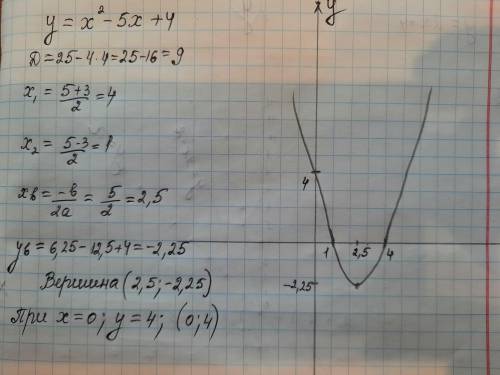 y = x² - 5x + 4
D = 25 - 4·4 = 25 - 16 = 9
x₁ = (5+3)/2 = 4
x₂ = (5-3)/2 = 1
xв = -b/2a = 5/2 = 2,5
yв = 6,25 - 12,5 + 4 = -2,25
Вершина (2,5; -2,25)
При x = 0; y = 4; (0; 4)
y
4
1 2,5 4
-2,25